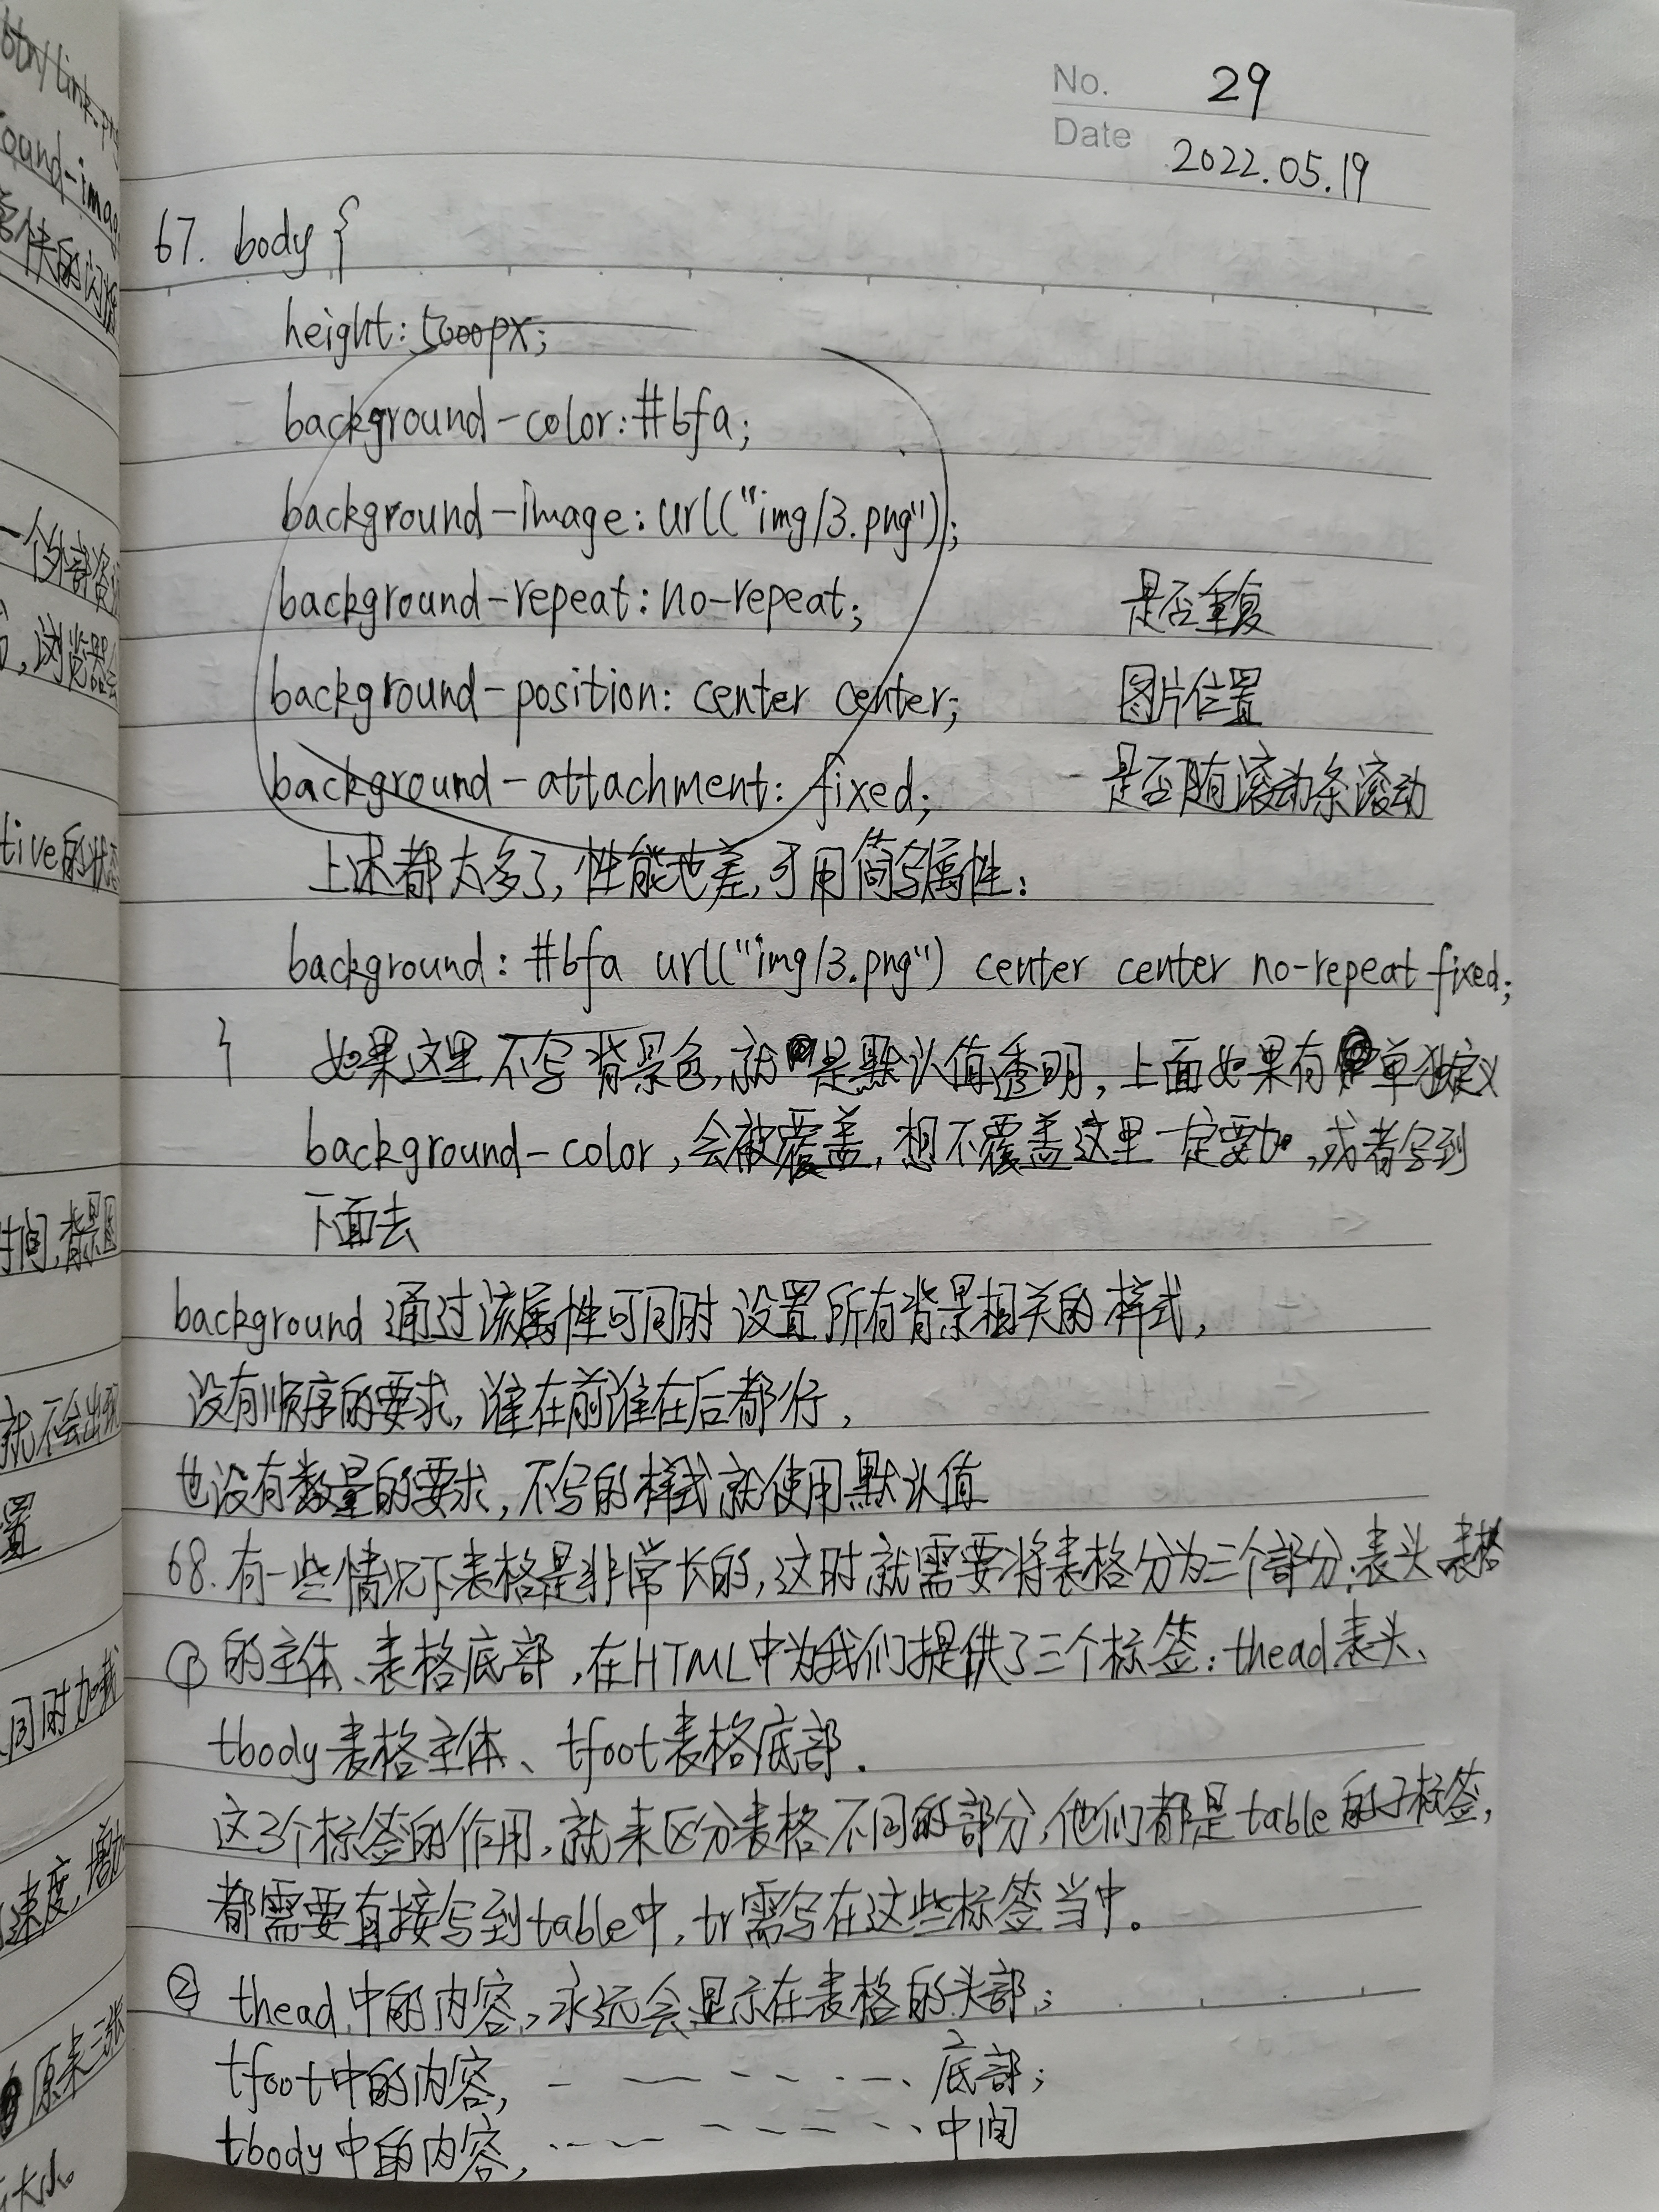 No. 29
Date 2022.05.19
67. body {
height: 5000px;
background-color: #bfa;
background-image: url("img/3.png");
background-repeat: no-repeat; 是否重复
background-position: center center; 图片位置
background-attachment: fixed; 是否随滚动条滚动
上述都太多了, 性能也差, 可用简写属性:
background: #bfa url("img/3.png") center center no-repeat fixed;
} 如果这里不写背景色, 就是默认值透明, 上面如果有单独定义
background-color, 会被覆盖, 想不覆盖这里一定要加, 或者写到
下面去
background 通过该属性可同时设置所有背景相关的样式,
没有顺序的要求, 谁在前谁在后都行,
也没有数量的要求, 不写的样式就使用默认值
68. 有一些情况下表格是非常长的, 这时就需要将表格分为三个部分: 表头、表格
① 的主体、表格底部, 在HTML中为我们提供了三个标签: thead表头、
tbody表格主体、tfoot表格底部.
这3个标签的作用, 就来区分表格不同的部分, 他们都是table的子标签,
都需要直接写到table中, tr需写在这些标签当中。
② thead中的内容, 永远会显示在表格的头部;
tfoot中的内容, 底部;
tbody中的内容, 中间
btn/link.pn
ound-imag
一个外部资
, 浏览器会
tive的状态
时间, 背景图
就不会出现
置
同时加载
速度, 增加
原来三张
大小